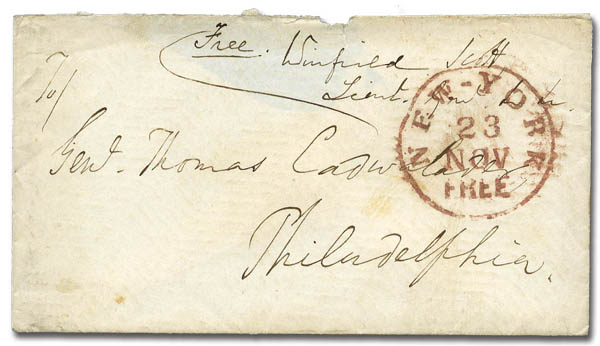 Free. Winfield Scott
Lieut. Genl.
To/
Genl. Thomas Cadwalader
Philadelphia.
NEW-YORK
23
NOV
FREE